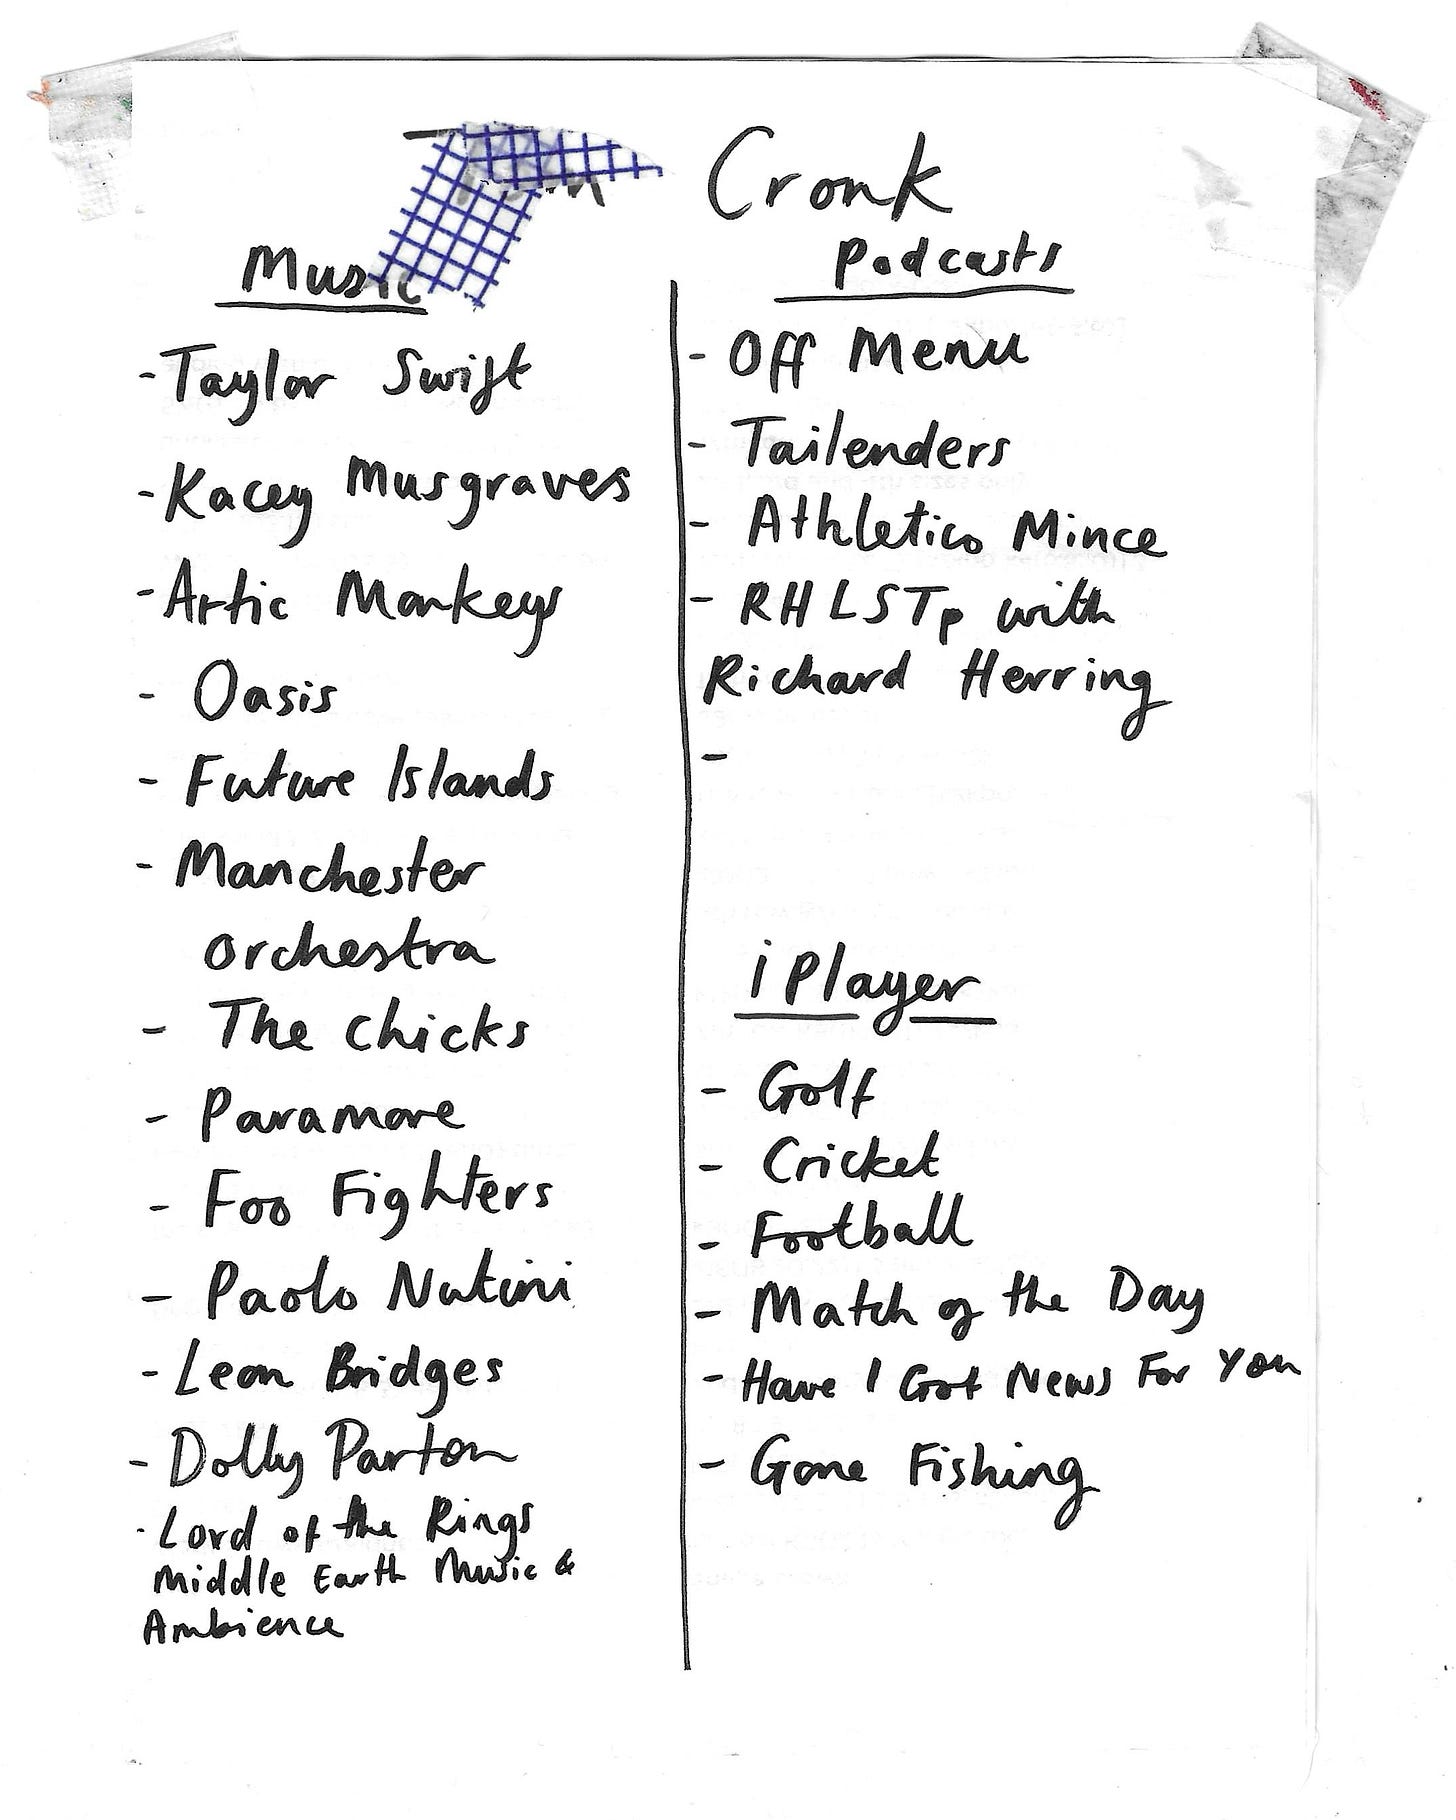 Cronk
Music
- Taylor Swift
- Kacey Musgraves
- Artic Monkeys
- Oasis
- Future Islands
- Manchester
Orchestra
- The Chicks
- Paramore
- Foo Fighters
- Paolo Nutini
- Leon Bridges
- Dolly Parton
- Lord of the Rings
Middle Earth Music &
Ambience
Podcasts
- Off Menu
- Tailenders
- Athletico Mince
- RHLSTp with
Richard Herring
-
iPlayer
- Golf
- Cricket
- Football
- Match of the Day
- Have I Got News For You
- Gone Fishing